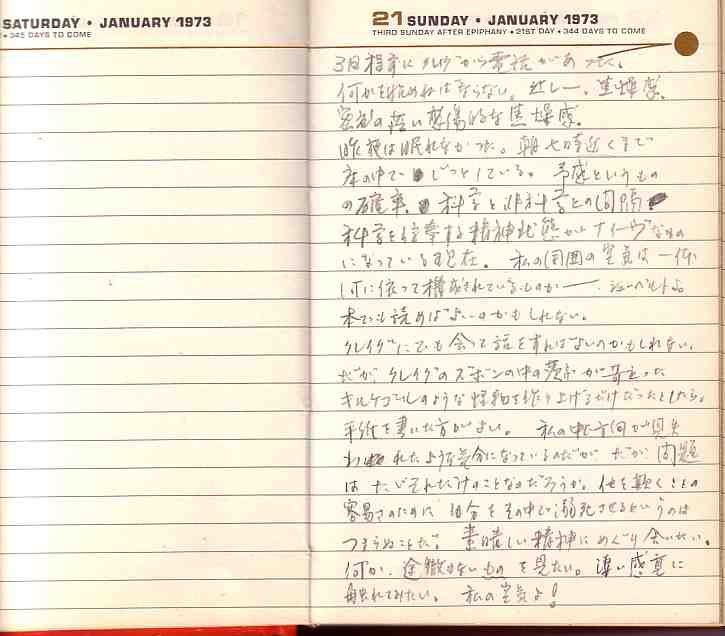 SATURDAY • JANUARY 1973
• 345 DAYS TO COME
21 SUNDAY • JANUARY 1973
THIRD SUNDAY AFTER EPIPHANY • 21ST DAY • 344 DAYS TO COME
3日程前にクレイグから電話があった。
何かを求めねばならない。焦燥感、
感傷的な焦燥感。
昨夜は眠れなかった。朝七時近くまで
床の中でじっとしている。予感というもの
の確率、科学と非科学との間隔、
科学を信奉する精神状態がナイーヴなもの
になっている現在。私の周囲の空気は一体
何に依って構成されているものか——
本でも読めばよいのかもしれない。
クレイグにでも会って話をすればよいのかもしれない。
だが、クレイグのズボンの中の
キルケゴールのような怪物を作り上げるだけだったとしたら、
手紙を書いた方がよい。私の中で方向が見失
われたような気分になっているのだが、だが、問題
はただそれだけのことなのだろうか。他を欺くことの
容易さのために自分をその中で溺死させるというのは
つまらぬことだ。素晴しい精神にめぐり合いたい。
何か、途徹もないものを見たい。凄い感電に
触れてみたい。私の空気よ!